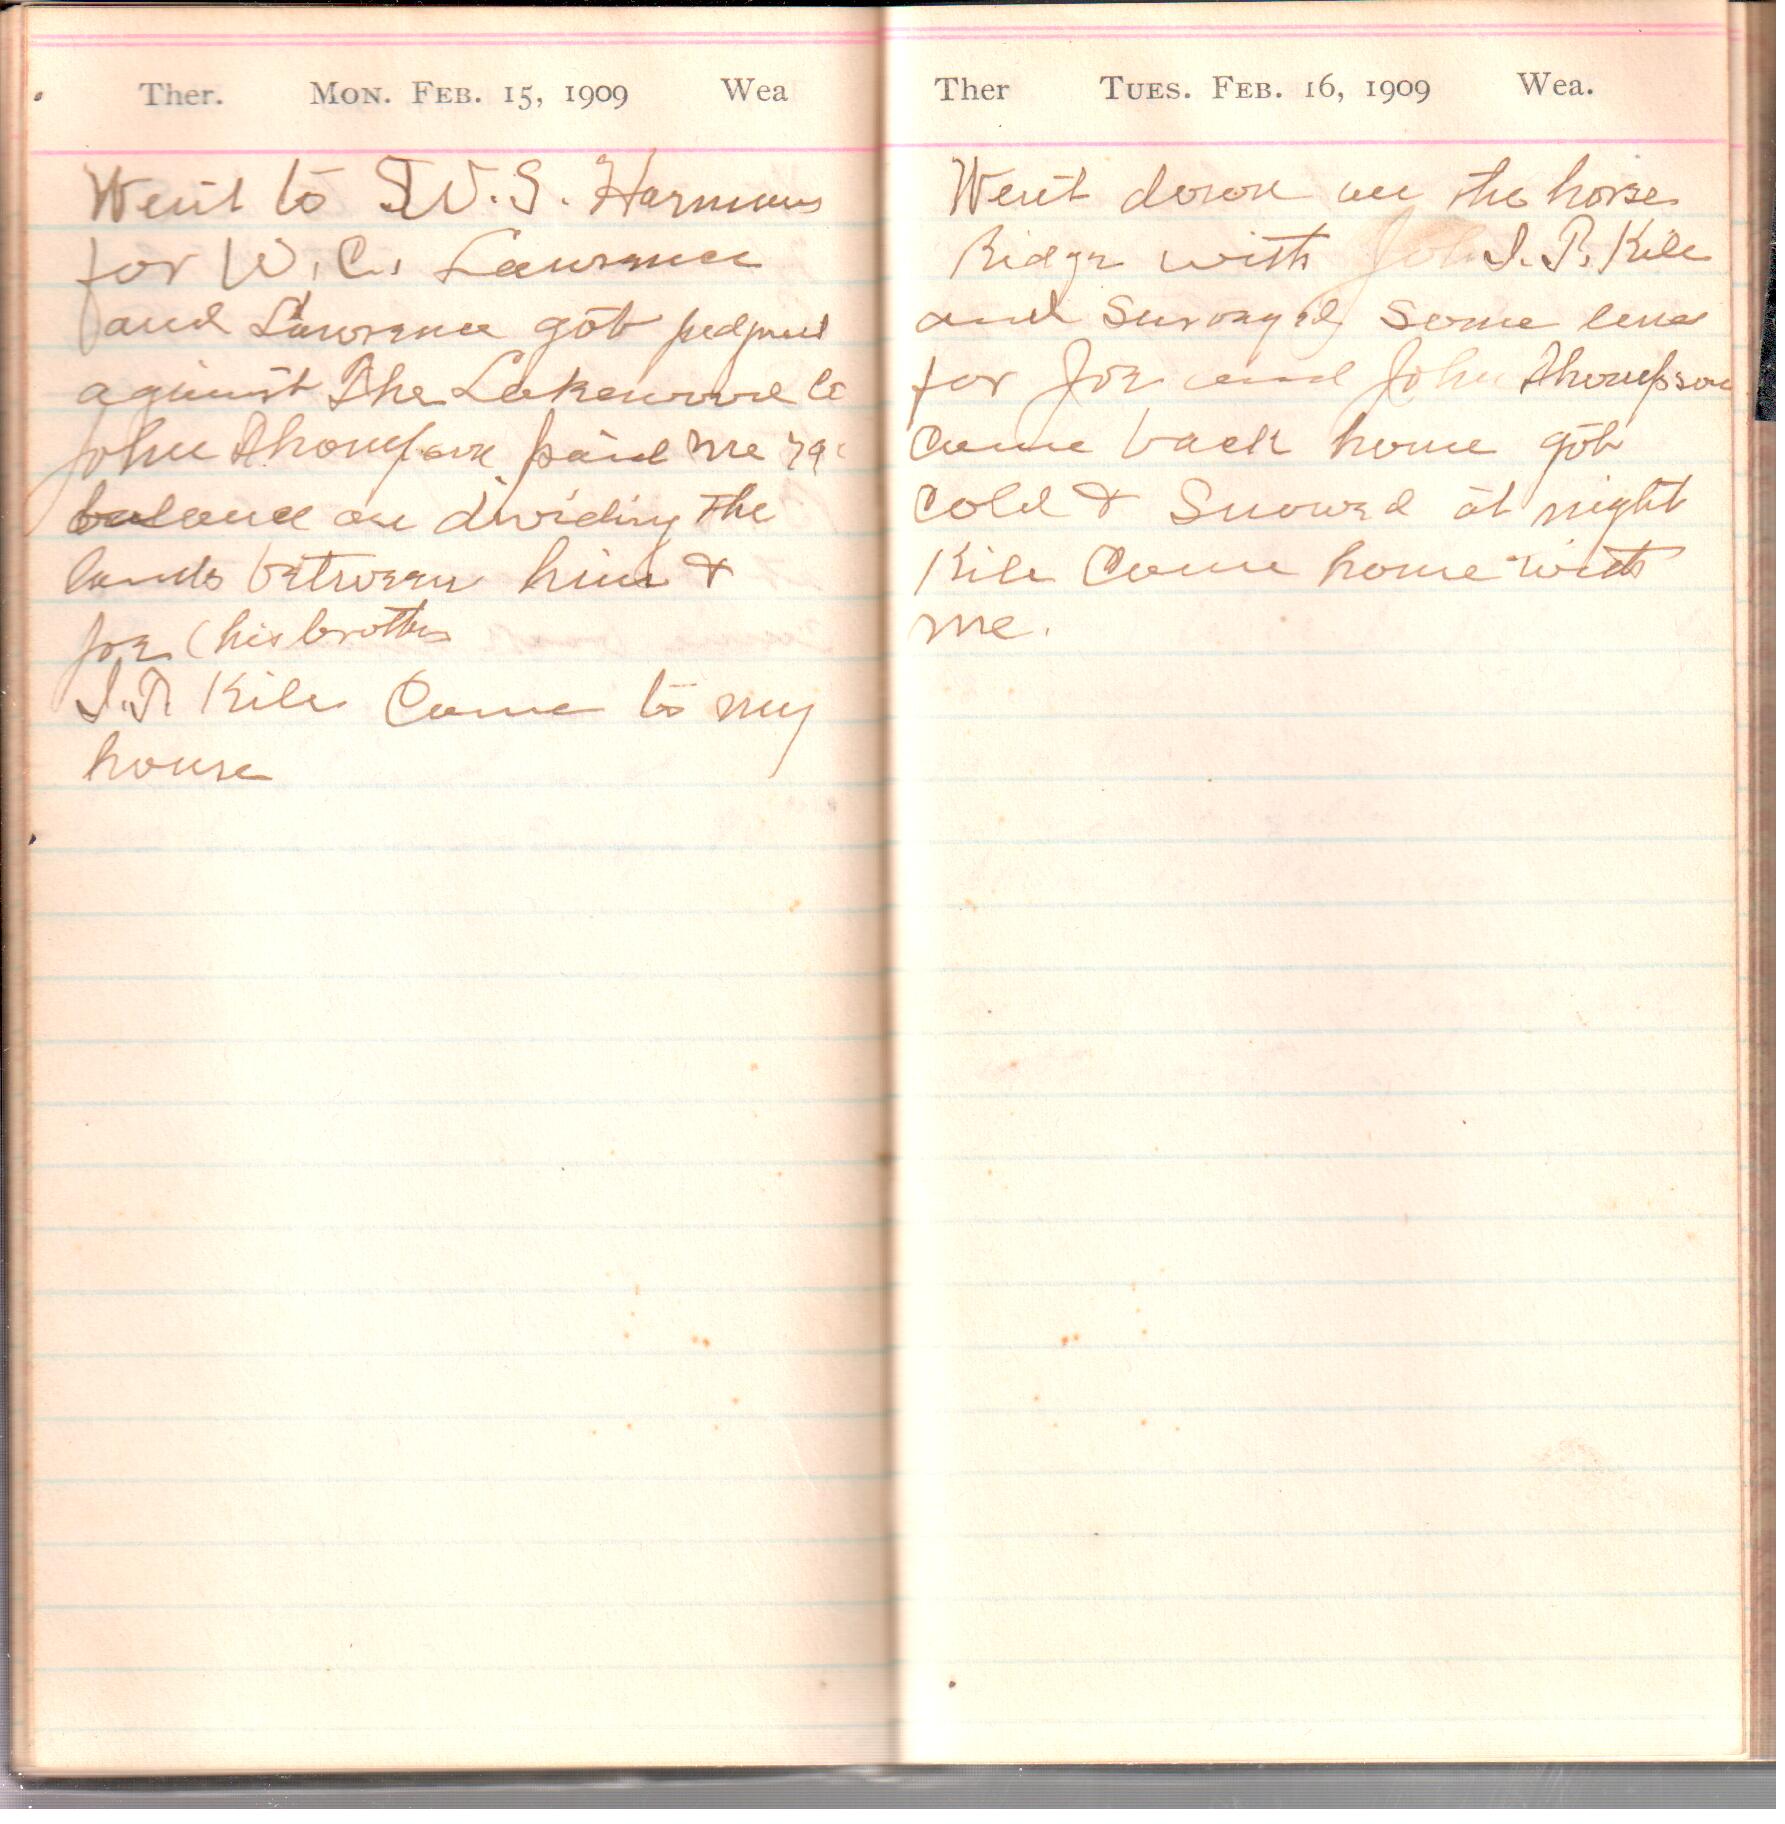 Ther. Mon. Feb. 15, 1909 Wea
Went to S.W.S. Harmans
for W. C. Lawrence
and Lawrence got
against The Co
John Thompson paid me
balance on dividing the
lands between him &
Joe (his brother
Kile Came to my
house
Ther Tues. Feb. 16, 1909 Wea.
Went down on the horse
Ridge with Kile
and Surveyed Some lines
for Joe and John Thompson
Came back home got
Cold & Snowed at night
Kile Came home with
me.